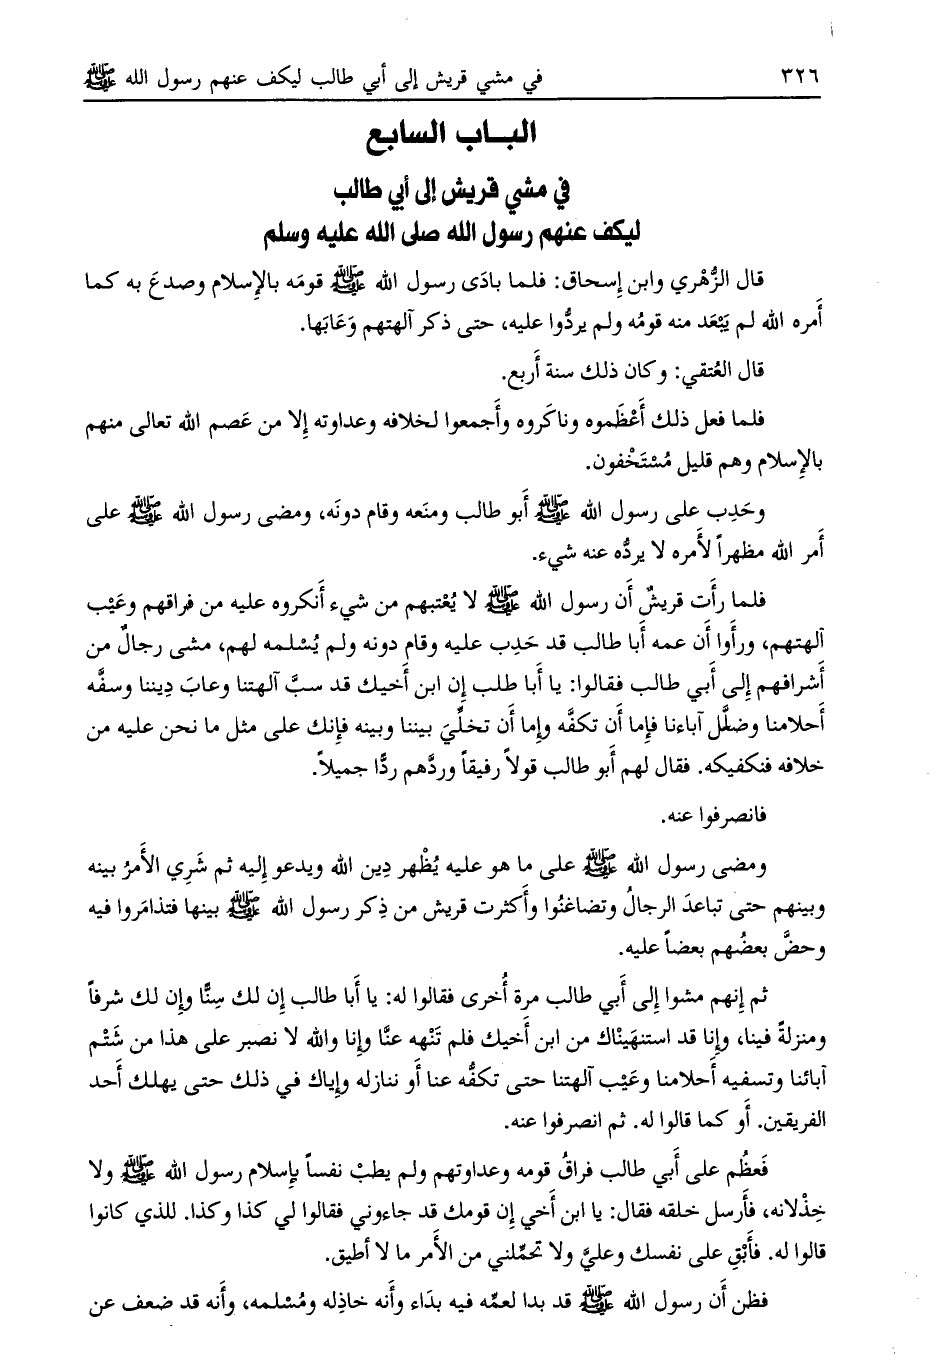 ٣٢٦ في مشي قريش إلى أبي طالب ليكف عنهم رسول الله ﷺ
البـاب السابع
في مشي قريش إلى أبي طالب
ليكف عنهم رسول الله صلى الله عليه وسلم
قال الزُّهْري وابن إسحاق: فلما بادَى رسول الله ﷺ قومَه بالإسلام وصدعَ به كما
أَمره الله لم يَبْعَد منه قومُه ولم يردُّوا عليه، حتى ذكر آلهتهم وَعَابَها.
قال العُتقي: وكان ذلك سنة أَربع.
فلما فعل ذلك أَعْظَموه وناكَروه وأَجمعوا لخلافه وعداوته إِلا من عَصم الله تعالى منهم
بالإسلام وهم قليل مُسْتَخْفون.
وحَدِب على رسول الله ﷺ أَبو طالب ومنَعه وقام دونَه، ومضى رسول الله ﷺ على
أَمر الله مظهراً لأَمره لا يردُّه عنه شيء.
فلما رأَت قريشٌ أَن رسول الله ﷺ لا يُعْتبهم من شيء أَنكروه عليه من فراقهم وعَيْب
آلهتهم، ورأَوا أَن عمه أَبا طالب قد حَدِب عليه وقام دونه ولم يُسْلمه لهم، مشى رجالٌ من
أَشرافهم إِلى أَبي طالب فقالوا: يا أَبا طلب إِن ابن أَخيك قد سبَّ آلهتنا وعابَ دِيننا وسفَّه
أَحلامنا وضلَّل آباءنا فإِما أَن تكفَّه وإِما أَن تخلِّيَ بيننا وبينه فإِنك على مثل ما نحن عليه من
خلافه فنكفيكه. فقال لهم أَبو طالب قولاً رفيقاً وردَّهم ردًّا جميلاً.
فانصرفوا عنه.
ومضى رسول الله ﷺ على ما هو عليه يُظْهر دِين الله ويدعو إِليه ثم شَرِي الأَمرُ بينه
وبينهم حتى تباعدَ الرجالُ وتضاغنُوا وأَكثرت قريش من ذِكر رسول الله ﷺ بينها فتذامَروا فيه
وحضَّ بعضُهم بعضاً عليه.
ثم إِنهم مشوا إِلى أَبي طالب مرة أُخرى فقالوا له: يا أَبا طالب إِن لك سِنًّا وإِن لك شرفاً
ومنزلةً فينا، وإِنا قد استنهَيْناك من ابن أَخيك فلم تَنْهه عنَّا وإِنا والله لا نصبر على هذا من شَتْم
آبائنا وتسفيه أَحلامنا وعَيْب آلهتنا حتى تكفُّه عنا أَو ننازله وإِياك في ذلك حتى يهلك أَحد
الفريقين. أَو كما قالوا له. ثم انصرفوا عنه.
فَعظُم على أَبي طالب فراقُ قومه وعداوتهم ولم يطبْ نفساً بإِسلام رسول الله ﷺ ولا
خِذْلانه، فأَرسل خلفه فقال: يا ابن أَخي إِن قومك قد جاءوني فقالوا لي كذا وكذا. للذي كانوا
قالوا له. فأَبْقِ على نفسك وعليَّ ولا تحمِّلني من الأَمر ما لا أطيق.
فظن أَن رسول الله ﷺ قد بدا لعمِّه فيه بدَاء وأَنه خاذِله ومُسْلمه، وأَنه قد ضعف عن